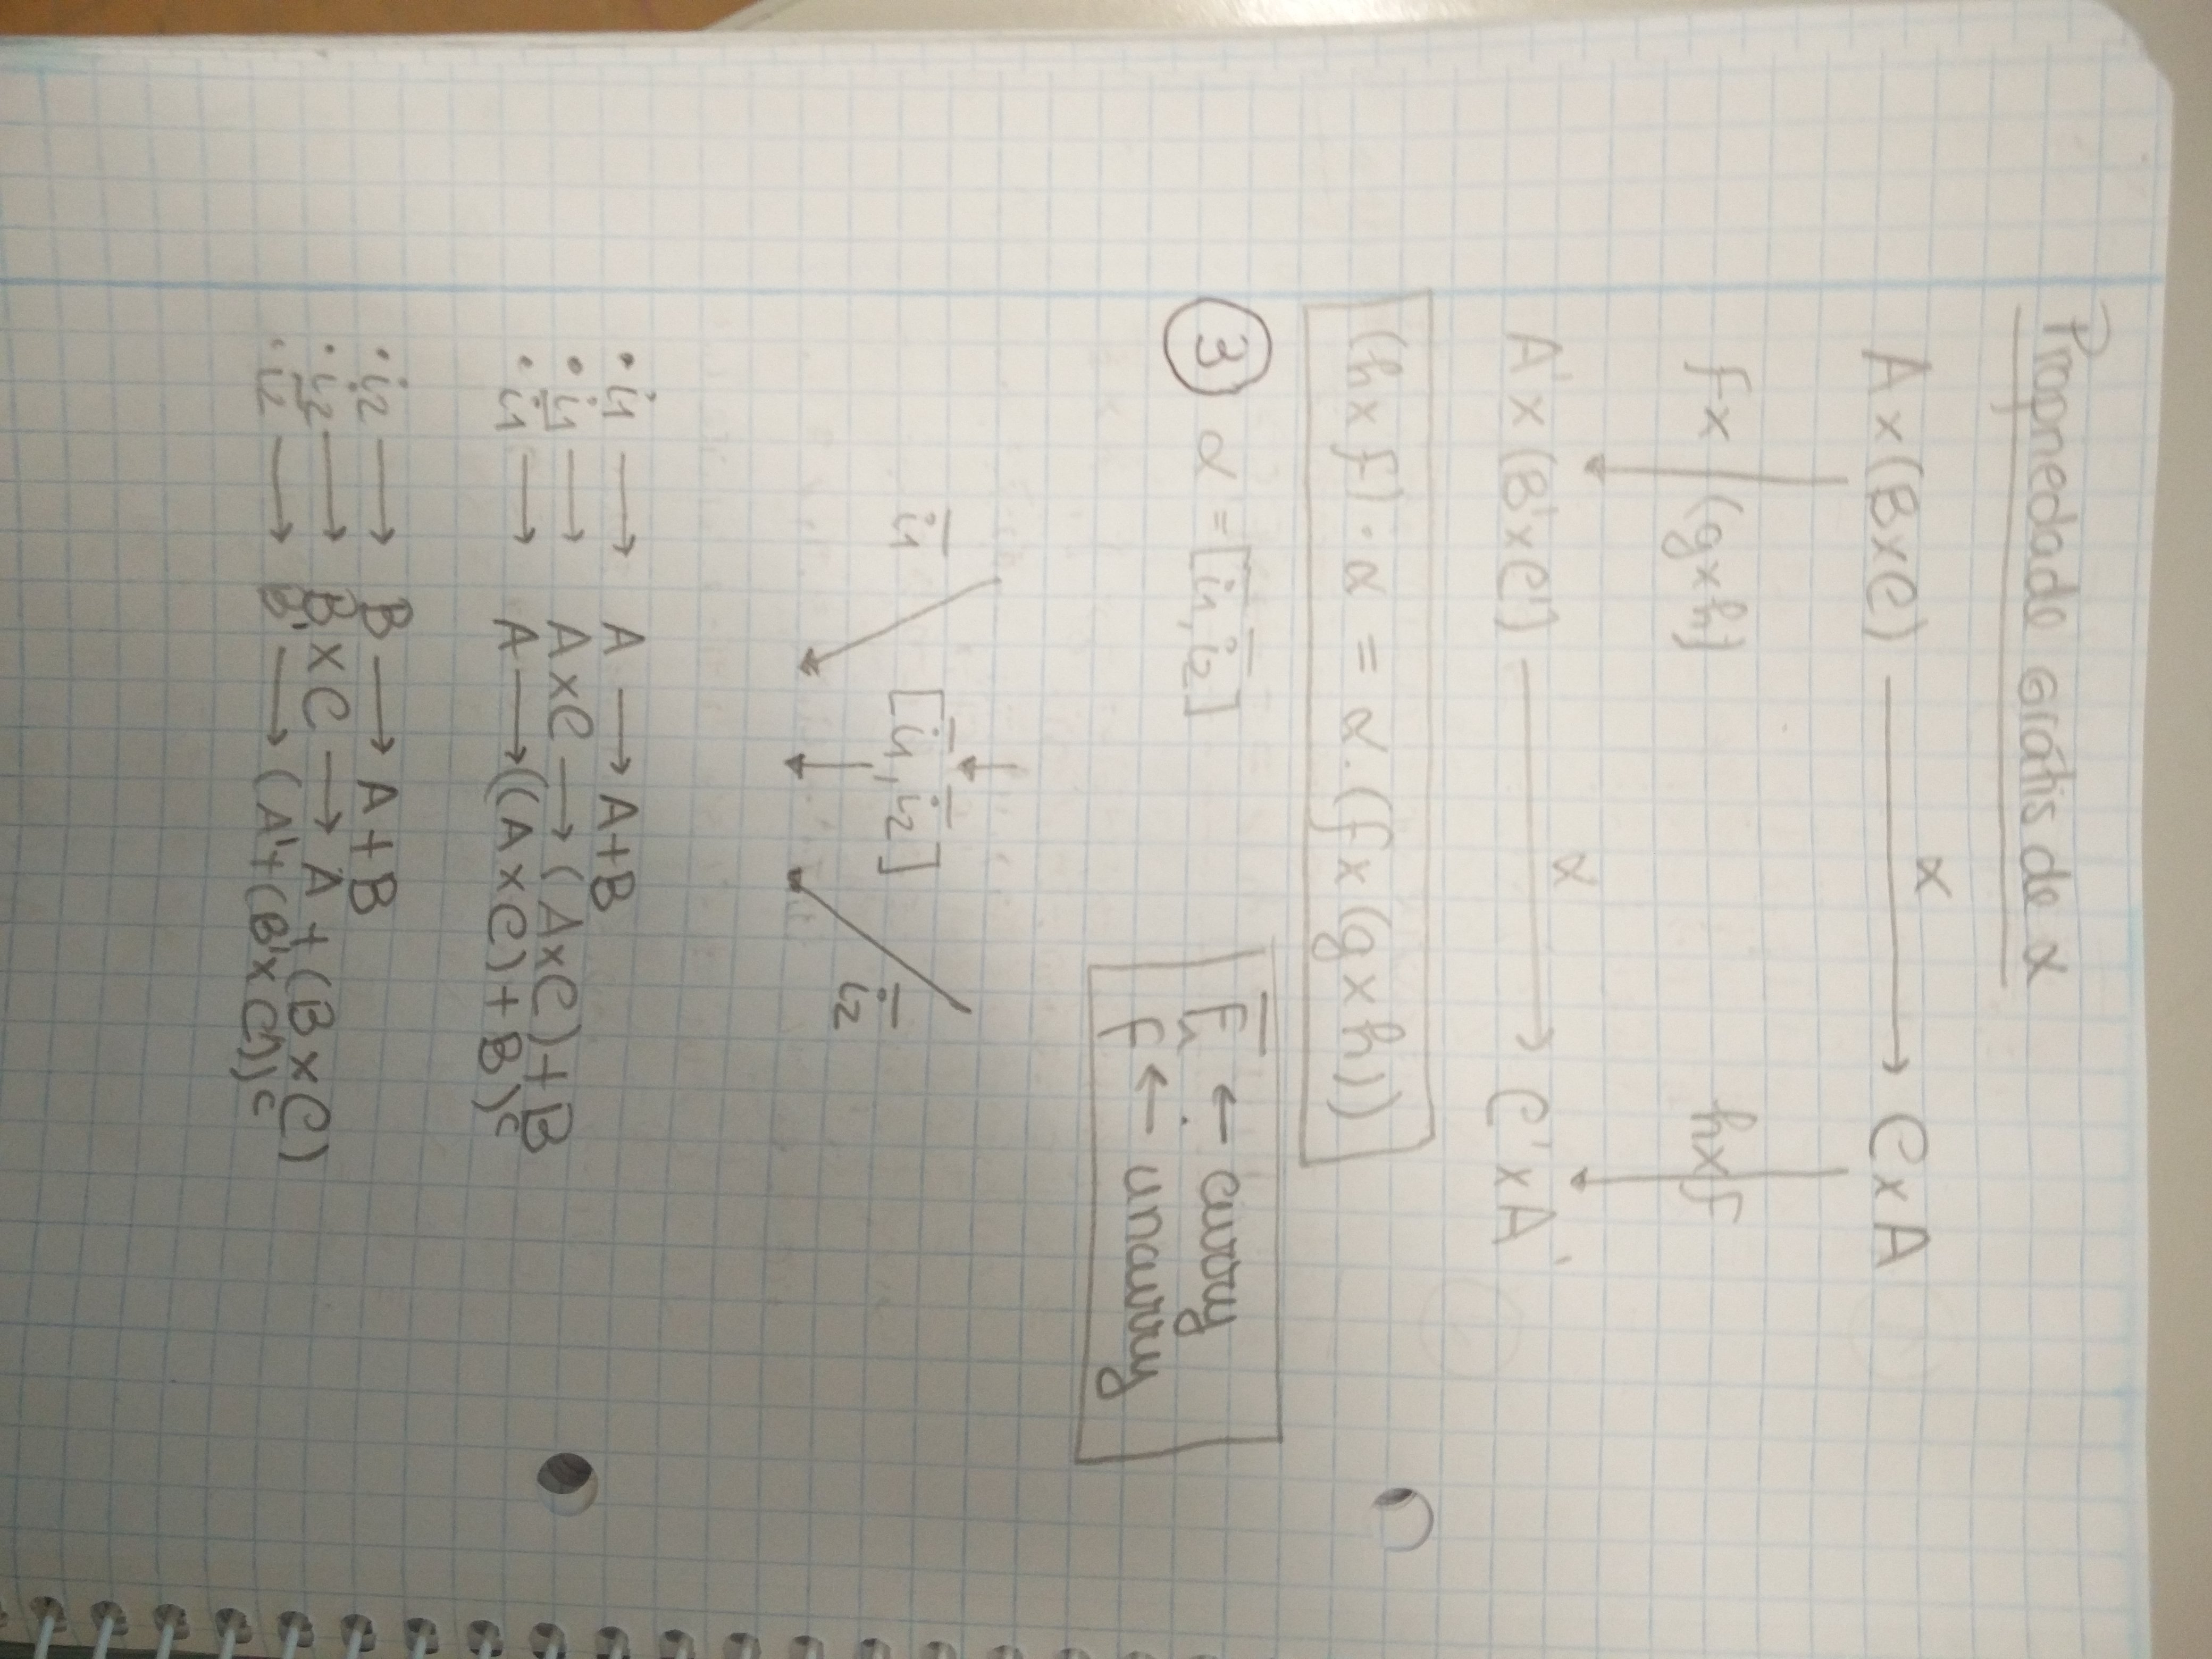 Propriedade Grátis de α
A×(B×C) α→ C×A
f×(g×h) h×f
A'×(B'×C') α→ C'×A'
(h×f)·α = α·(f×(g×h))
③ α = [i̅₁, i̅₂]
f̅ ← curry
f̂ ← uncurry
i̅₁ [i̅₁, i̅₂] i̅₂
• i₁ → A → A+B
• i₁ → A×C → (A×C)+B
• i̅₁ → A → ((A×C)+B)ᶜ
• i₂ → B → A+B
• i₂ → B×C → A+(B×C)
• i̅₂ → B' → (A'+(B'×C'))ᶜ